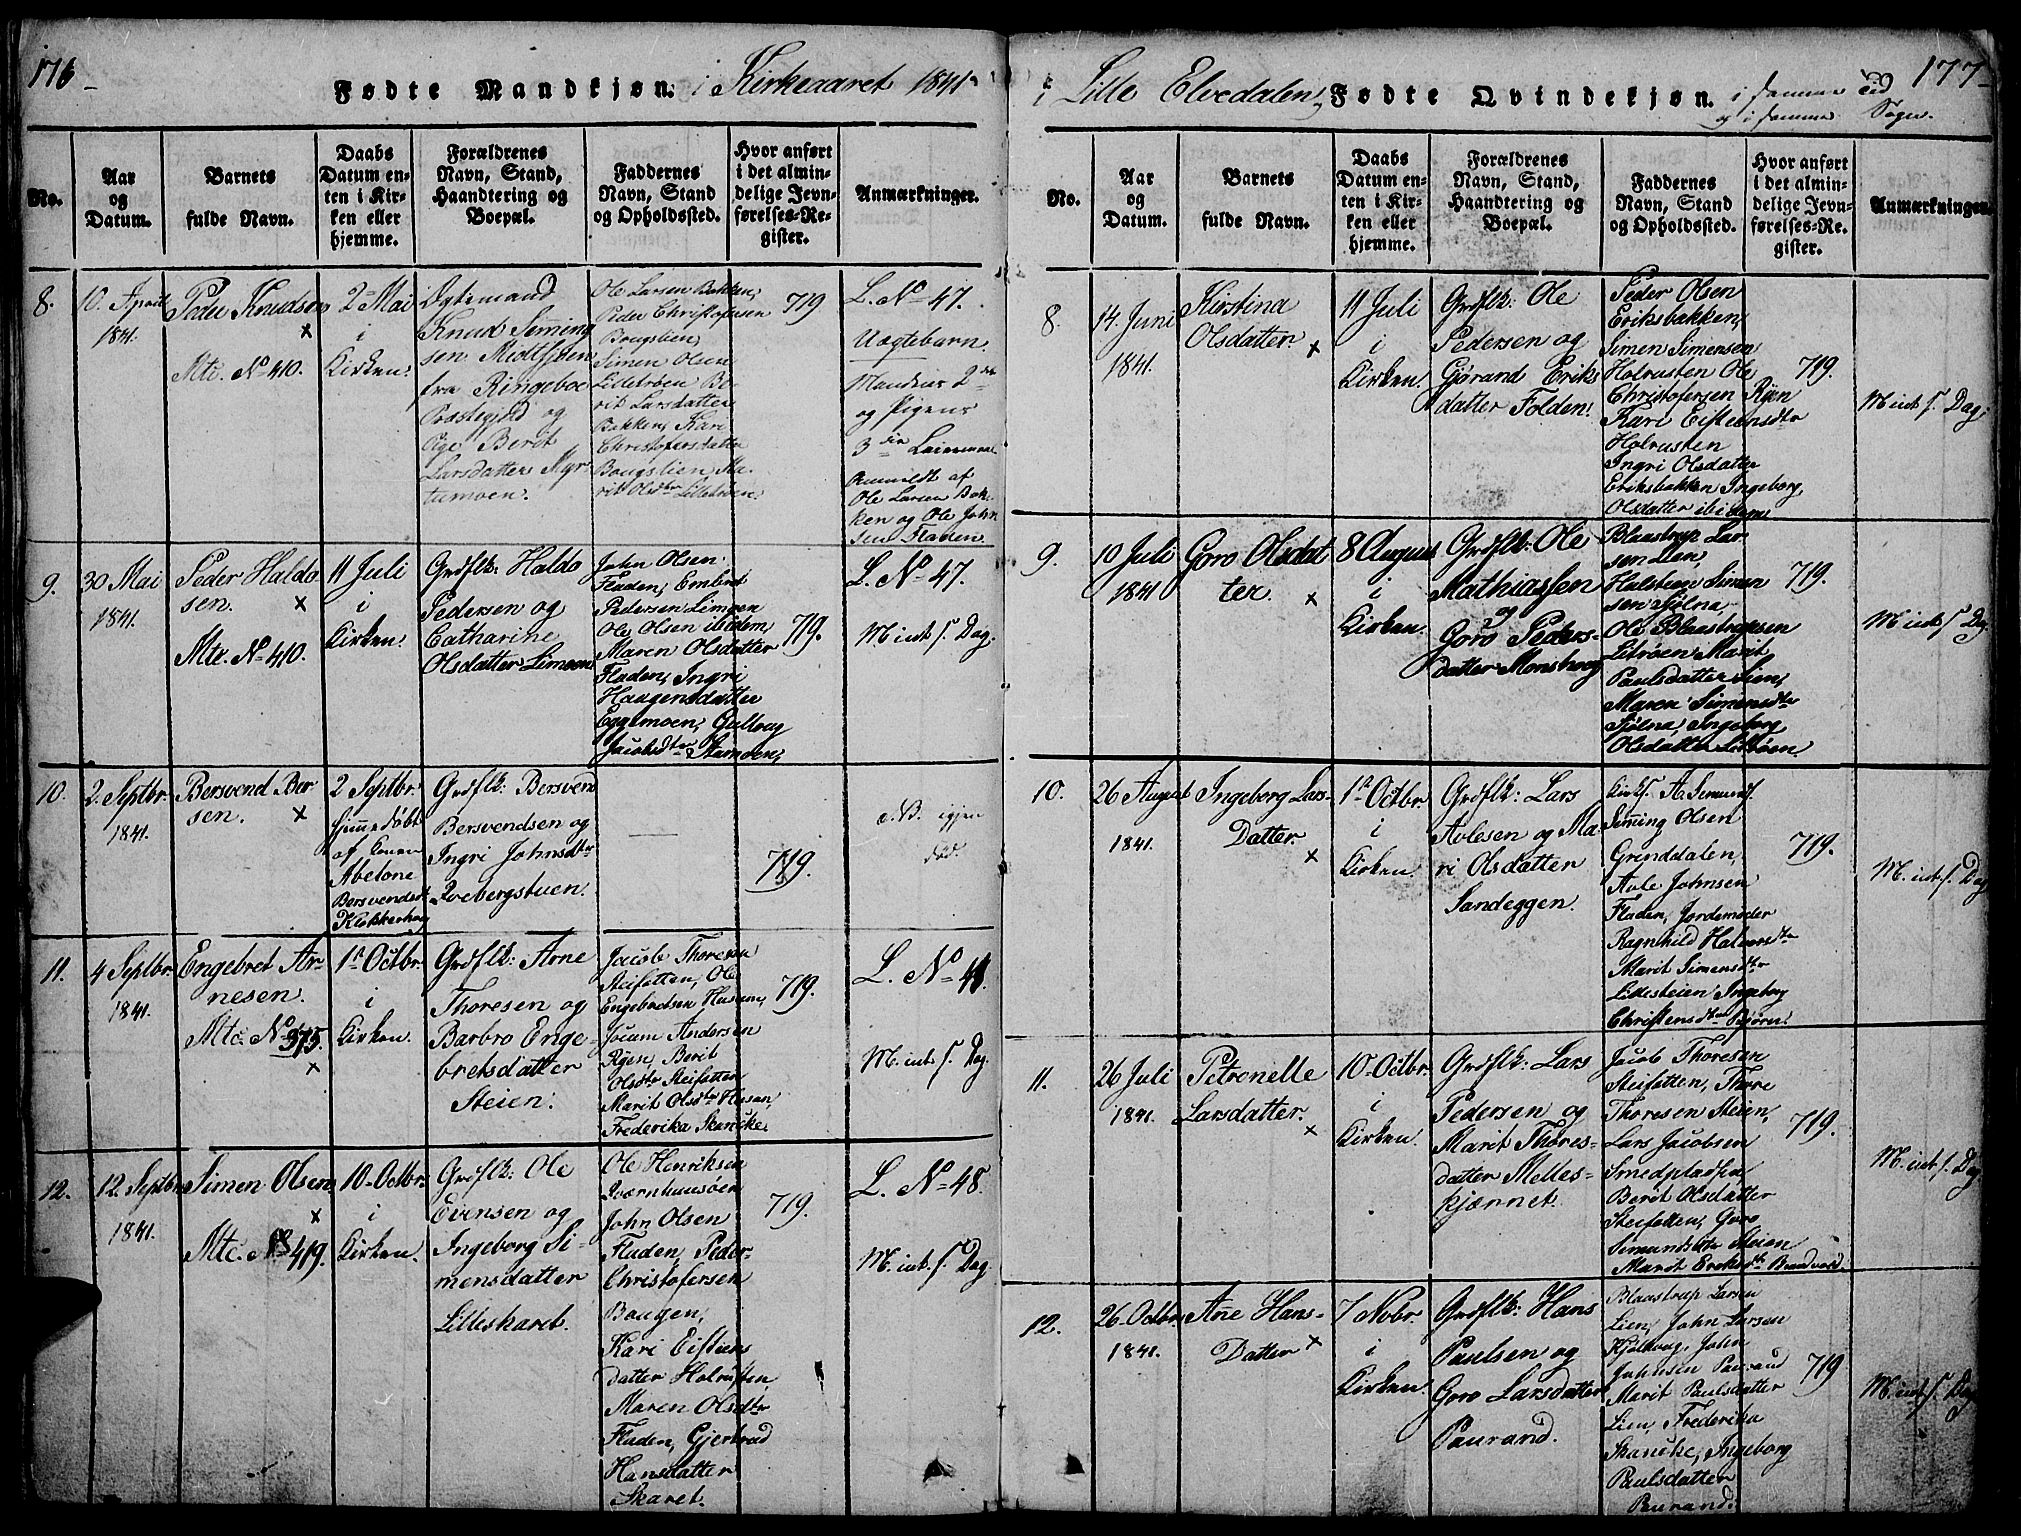 176
Fødte Mandkjøn. i Kirkeaaret 1841
No.
Aar
og
Datum.
Barnets
fulde Navn.
Daabs
Datum en-
ten i Kir-
ken eller
hjemme.
Forældrenes
Navn, Stand,
Haandtering og
Boepæl.
Faddernes
Navn, Stand
og Opholdssted.
Hvor anført
i det almin-
delige Jevn-
førelses-Re-
gister.
Anmærkninger.
8.
10. April
1841.
Peder Knudsen
×
Mtc. No 410.
2 Mai
i
Kirken.
Ogtemand
Knud Siming
sen
fra Ringeboe
Præstegjeld og
Pige Berit
Larsdatter Myr
tumoen.
Ole Larsen Bakken,
Peder Christofersen
Bougslien,
Simen Olsen
Lilletrøen Be-
rit Larsdatter
Bakken, Kari
Christofersdatter
Bougslien Ma-
rit Olsdtr Lilletrøen.
719
L. No 47.
Uægtebarn.
Mandens 2den
og Pigens
3die Leiermaal
Anmeldt af
Ole Larsen Bak-
ken og Ole John
sen Fladen.
9.
30 Mai
1841.
Peder Haldo
sen. ×
Mtc. No 410.
11 Juli
i
Kirken.
Grdflk: Haldo
Pedersen og
Catharine
Olsdatter Limoen
John Olsen
Fladen, Embret
Pedersen Limoen
Ole Olsen ibidem,
Maren Olsdatter
Fladen, Ingri
Haagensdatter
Eggemoen, Gullaug
Jacobsdtr
719.
L. No 47.
M int. s. Dag.
10.
2. Septbr.
1841.
Bersvend Ber
sen. ×
2 Septbr.
hjemmedøbt
af Konen
Abelone
Bersvendsdt
Klokkerhoug
Grdflk: Bersvend
Bersvendsen og
Ingri Johnsdtr
Qvebergstuen.
719.
N.B. igjen
død.
11.
4 Septbr.
1841.
Engebret Ar
nesen.
Mtc. No 375.
×
1ste Octbr.
i
Kirken.
Grdflk: Arne
Thoresen og
Barbro Enge-
bretsdatter
Steien.
Jacob Thoresen
Steifetten, Ole
Engebretsen Husum,
Joram Andersen
Ryen Berit
Olsdtr Steifetten
Marit Olsdtr Husan,
Frederika Skancke.
719.
L. No 41.
M. int. s. Dag
12.
12. Septbr
1841.
Simen Olsen
×
Mtc. No 419.
10 Octbr.
i
Kirken.
Grdflk: Ole
Evensen og
Ingeborg Si-
mensdatter
Lilleskaret.
Ole Henriksen
Qværnhuusøen
John Olsen
Fladen, Peder
Christofersen
Bougen,
Kari Eistens
datter Holrusten,
Maren Olsdtr
Fladen, Gjertrud
Hansdatter
Skaret.
719.
L. No 48.
M. int. s. Dag.
i Lille Elvedalen, Fødte Qvindekjøn. i samme Tid
og i samme Sogn.
177
No.
Aar
og
Datum.
Barnets
fulde Navn.
Daabs
Datum en-
ten i Kir-
ken eller
hjemme.
Forældrenes
Navn, Stand,
Haandtering og
Boepæl.
Faddernes
Navn, Stand
og Opholdssted.
Hvor anført
i det almin-
delige Jevn-
førelses-Re-
gister.
Anmærkninger.
8.
14. Juni
1841.
Kirstina
Olsdatter ×
11 Juli
i
Kirken.
Grdflk: Ole
Pedersen og
Gjørand Eriks
datter Folden.
Peder Olsen
Eriksbakken,
Simen Simensen
Holrusten Ole
Christofersen Ryen
Kari Eisteensdtr
Holrusten
Ingri Olsdatter
Eriksbakken Ingeborg
Olsdatter ibidem
719.
M int. s. Dag.
9.
10 Juli
1841
Goro Olsdat
ter. ×
8 August
i
Kirken.
Grdflk: Ole
Mathiassen
og
Goro Peders-
datter Monshoug
Blaastrup Lar
sen Lien,
Halsteen Simen
sen Sjølna,
Ole Blaastrupsen
Litrøen Marit
Paulsdatter Lien,
Maren Simensdtr
Sjølna, Ingeborg
Olsdatter Litrøen
719.
M int. s. Dag.
10.
26 August
1841.
Ingeborg Lars-
Datter.
×
1ste Octbr.
i
Kirken.
Grdflk: Lars
Avlesen og Ma-
ri Olsdatter
Sandeggen.
Kirks. A. Semunds.
Siming Olsen
Grinddalen,
Avle Johnsen
Fladen, Jordemoder
Ragnhild Halvorsdtr
Marit Simensdtr
Lillesteien Ingeborg
Christensdtr Bjøren.
719.
M. int. s. Dag
11.
26 Juli
1841.
Petronelle
Larsdatter.
×
10 Octbr.
i
Kirken.
Grdflk: Lars
Pedersen og
Marit Thores-
datter Melles-
kjærnet.
Jacob Thoresen
Steifetten, Thore
Thoresen Steien,
Lars Jacobsen
Smedpladsen
Berit Olsdatter
Steifetten, Goro
Simundsdtr Steien
Marit Eriksdtr Brandvold.
719.
M. int. s. Dag.
12.
26. Octbr.
1841.
Ane Hans-
Datter ×
7 Novbr.
i
Kirken.
Grdflk: Hans
Paulsen og
Goro Larsdatter
Paurand.
Blaastrup Larsen
Lien, John Larsen
Kjølhoug, John
Johnsen Paurand
Marit Paulsdatter
Lien, Frederika
Skancke, Ingeborg
Paulsdatter
Paurand.
719
M. int. s. Dag